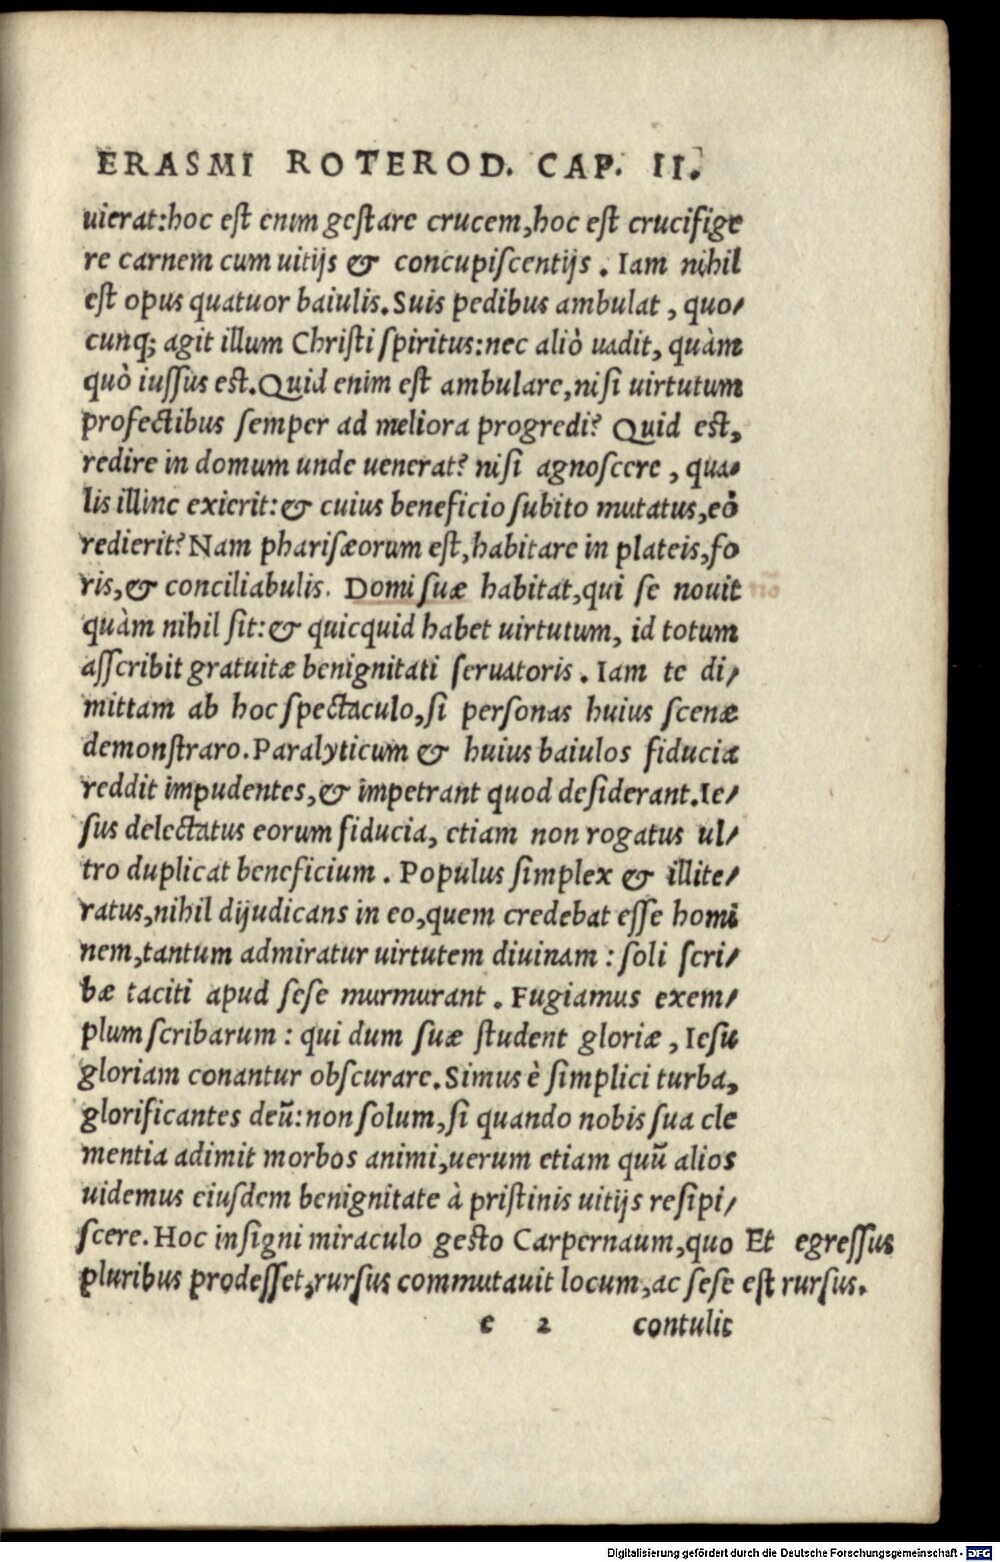 ERASMI ROTEROD. CAP. II.
uierat:hoc eſt enim geſtare crucem,hoc eſt crucifige
re carnem cum uitijs & concupiſcentijs . Iam nihil
eſt opus quatuor baiulis.Suis pedibus ambulat , quo/
cunq; agit illum Chriſti ſpiritus:nec aliò uadit, quàm
quò iuſſus eſt.Quid enim eſt ambulare,niſi uirtutum
profectibus ſemper ad meliora progredi? Quid eſt,
redire in domum unde uenerat? niſi agnoſcere , qua-
lis illinc exierit:& cuius beneficio ſubito mutatus,eò
redierit?Nam phariſæorum eſt,habitare in plateis,fo
ris,& conciliabulis. Domi ſuæ habitat,qui ſe nouit
quàm nihil ſit:& quicquid habet uirtutum, id totum
aſſcribit gratuitæ benignitati ſeruatoris . Iam te di/
mittam ab hoc ſpectaculo,ſi perſonas huius ſcenæ
demonſtraro.Paralyticum & huius baiulos fiducia
reddit impudentes,& impetrant quod deſiderant.Ie/
ſus delectatus eorum fiducia, etiam non rogatus ul/
tro duplicat beneficium . Populus ſimplex & illite/
ratus,nihil dijudicans in eo,quem credebat eſſe homi
nem,tantum admiratur uirtutem diuinam : ſoli ſcri/
bæ taciti apud ſeſe murmurant . Fugiamus exem/
plum ſcribarum : qui dum ſuæ ſtudent gloriæ , Ieſu
gloriam conantur obſcurare.Simus è ſimplici turba,
glorificantes deũ:non ſolum,ſi quando nobis ſua cle
mentia adimit morbos animi,uerum etiam quũ alios
uidemus eiuſdem benignitate à priſtinis uitijs reſipi/
ſcere.Hoc inſigni miraculo geſto Carpernaum,quo Et egreſſus
pluribus prodeſſet,rurſus commutauit locum,ac ſeſe eſt rurſus.
e 2 contulit
Digitalisierung gefördert durch die Deutsche Forschungsgemeinschaft - DFG